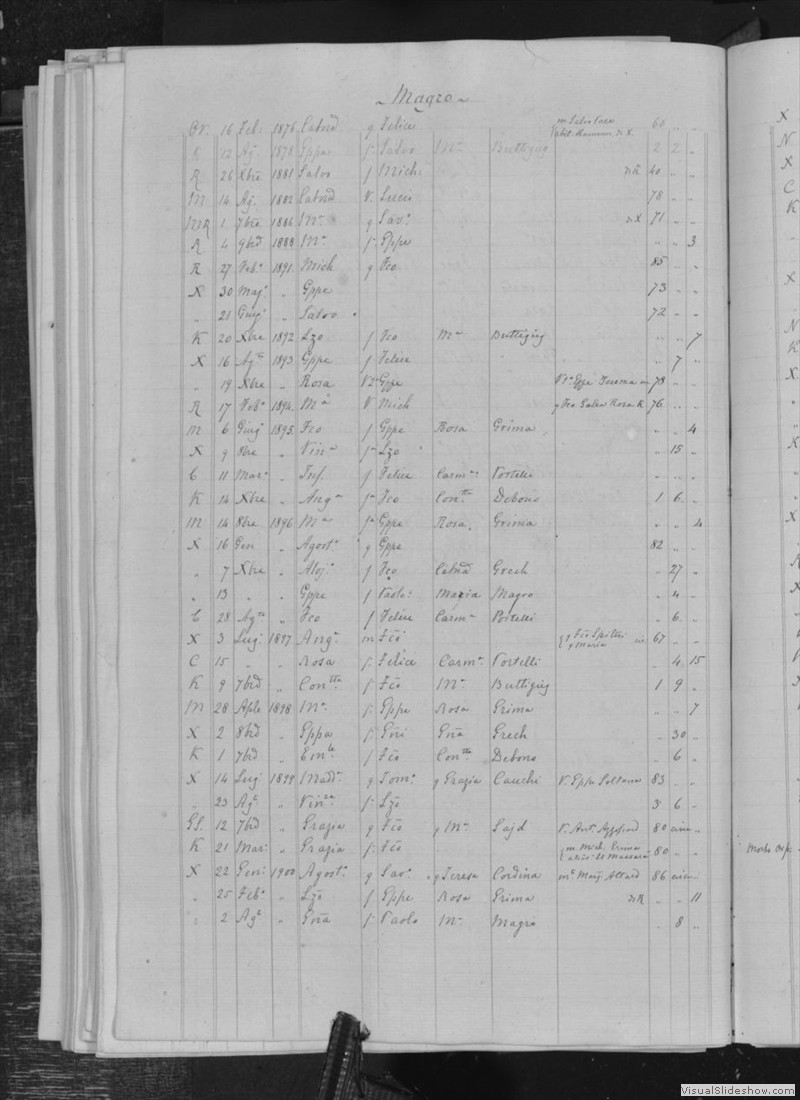 Magro
16 Feb. 1876 Catnd q Felice m Salvo 60 " "
abit. Hammrun, di X
K 12 Ag. 1878 Gppa f. Salvo Ma Buttigieg 2 2 "
R 26 Xbre 1881 Salvo f Mich. 40 " "
M 14 Ag. 1882 Catnd V. 78 " "
MR 1 7bre 1886 Ma q Sav. di X 71 " "
R 4 9bre 1888 Ma f. Gppe " " 3
R 27 Feb. 1891 Mich q Fco 85 " "
X 30 Mag. " Gppe 73 " "
" 21 Giug. " Salvo 72 " "
K 20 Xbre 1892 Lzo f Fco Ma Buttigieg " " 7
X 16 1893 Gppe f Felice " 7 "
" 19 Xbre " Rosa Va Gppe 78 " "
R 17 Feb. 1894 Ma V Mich q Fco Galea Rosa K 76 " "
M 6 Giug. 1895 Fco f Gppe Rosa Grima " " 4
X 9 8bre " Vin f Lzo " 15 "
C 11 Mar. " Inf. f Felice Carma Portelli
K 14 Xbre " Anga f Fco Contta Debono 1 6 "
M 14 8bre 1896 Ma f Gppe Rosa Grima " " 4
X 16 Gen " Agosta q Gppe 82 " "
" 7 Xbre " Aloj. f Fco Catnd Grech " 27 "
" 13 " " Gppe f Paolo Maria Magro " 4 "
C 28 " Fco f Felice Carma Portelli " 6 "
X 3 Lug. 1897 Anga m Fco q Fco Spiteri 67 " "
q Maria
C 15 " " Rosa f. Felice Carma Portelli " 4 15
K 9 7bre " Contta f. Fco Ma Buttigieg 1 9 "
M 28 Aple 1898 Ma f. Gppe Rosa Grima " " 7
X 2 8bre " Gppa f. Gni Gna Grech " 30 "
K 1 7bre " f Fco Contta Debono " 6 "
X 14 Lug. 1899 Madda q Tom. q Grazia Cauchi V. Gppe Sultana 83 " "
" 23 Ag. " Vin f. Lzo 3 6 "
GS. 12 7bre " Grazia q Fco q Ma Sajd V. Ant. Azzopard 80 circa "
K 21 Mar. " Grazia f. Fco m. Mich. Grima 80 " "
alias il Massari
X 22 Gen. 1900 Agosta q Sav. q Teresa Cordina Attard 86 circa "
" 25 Feb. " Lzo f Gppe Rosa Grima di R " " 11
" 2 Ag. " Gna f. Paolo Ma Magro " 8 "
VisualSlideshow.com